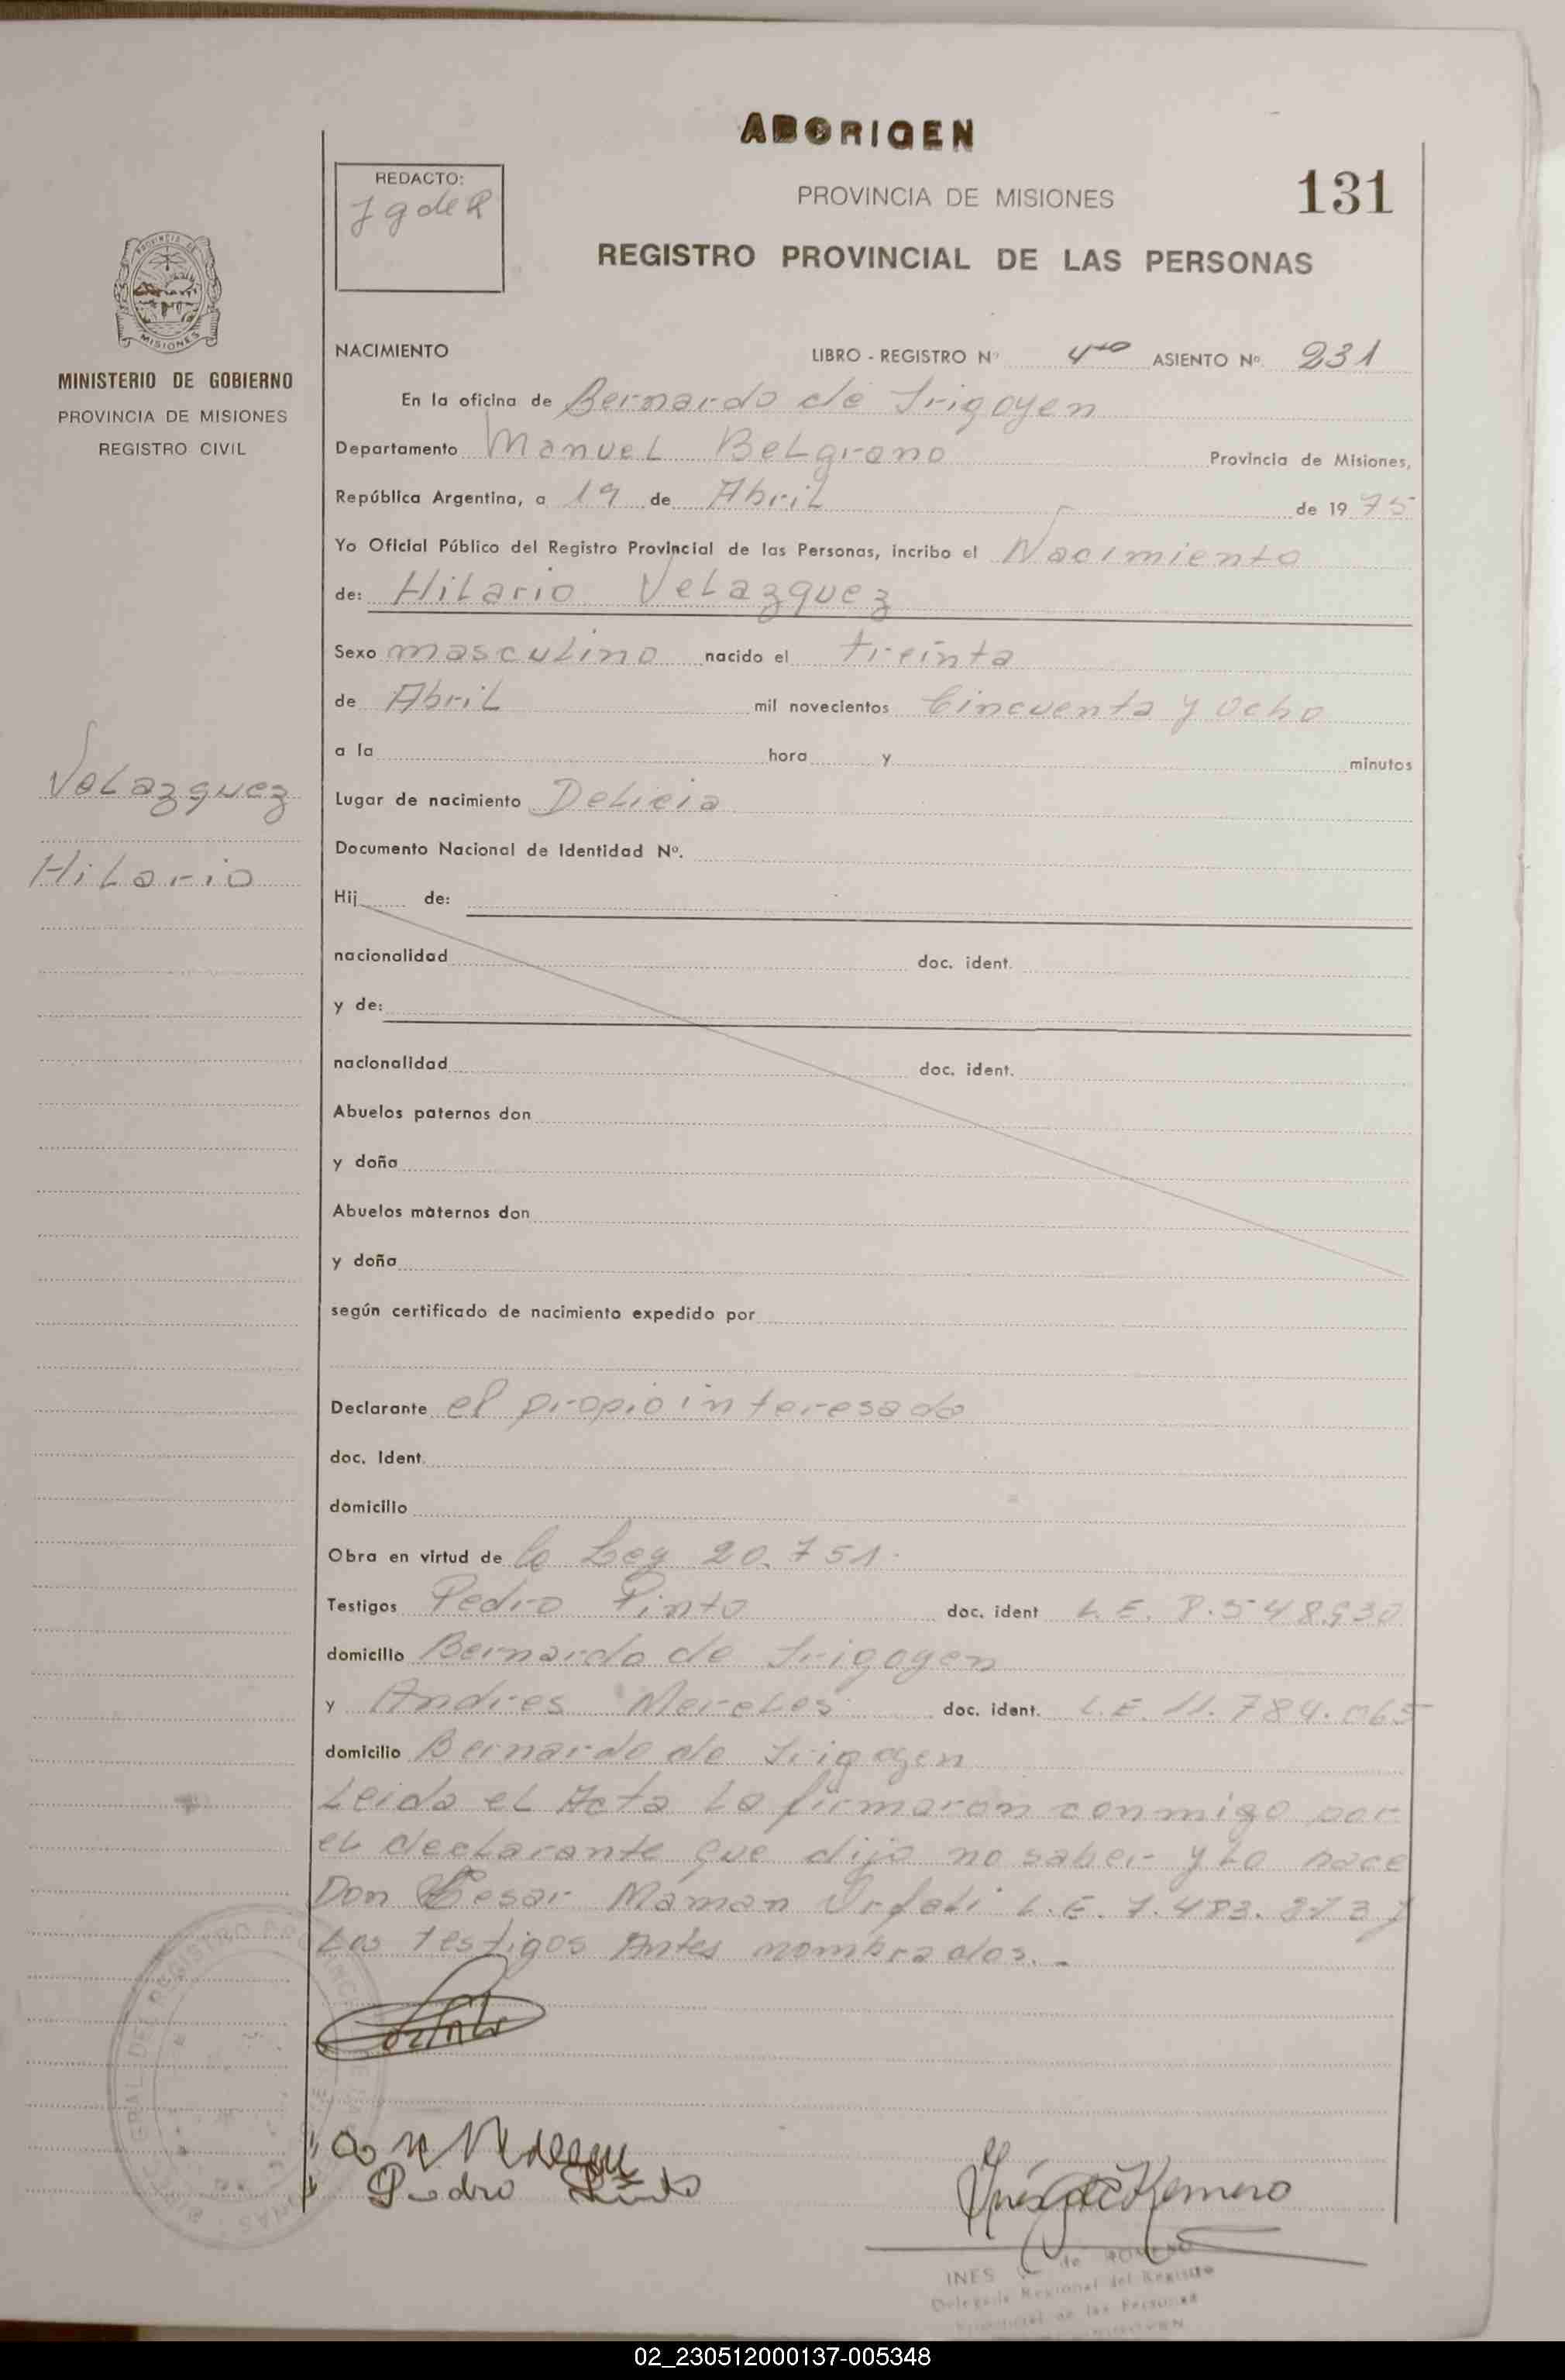 ABORIGEN
REDACTO:
J g de R
PROVINCIA DE MISIONES
131
REGISTRO PROVINCIAL DE LAS PERSONAS
PROVINCIA DE
MISIONES
MINISTERIO DE GOBIERNO
PROVINCIA DE MISIONES
REGISTRO CIVIL
NACIMIENTO LIBRO - REGISTRO Nº 4to ASIENTO Nº. 231
En la oficina de Bernardo de Irigoyen
Departamento Manuel Belgrano Provincia de Misiones,
República Argentina, a 19 de Abril de 1975
Yo Oficial Público del Registro Provincial de las Personas, incribo el Nacimiento
de: Hilario Velazquez
Sexo masculino nacido el treinta
de Abril mil novecientos Cincuenta y ocho
a la hora y minutos
Velazquez
Lugar de nacimiento Delicia
Documento Nacional de Identidad Nº.
Hilario
Hij de:
nacionalidad doc. ident.
y de:
nacionalidad doc. ident.
Abuelos paternos don
y doña
Abuelos maternos don
y doña
según certificado de nacimiento expedido por
Declarante el propio interesado
doc. Ident.
domicilio
Obra en virtud de la Ley 20.751.
Testigos Pedro Pinto doc. ident L.E. 8.548.930
domicilio Bernardo de Irigoyen
y Andres Mereles doc. ident. L.E. 11.784.065
domicilio Bernardo de Irigoyen
Leida el Acta la firmaron conmigo por
el declarante que dijo no saber y lo hace
Don Cesar Maman L.E. 7.483. y
Los testigos Antes nombrados.-
Pedro Pinto
INES de ROMERO
Delegada Regional del Registro
Provincial de las Personas
02_230512000137-005348